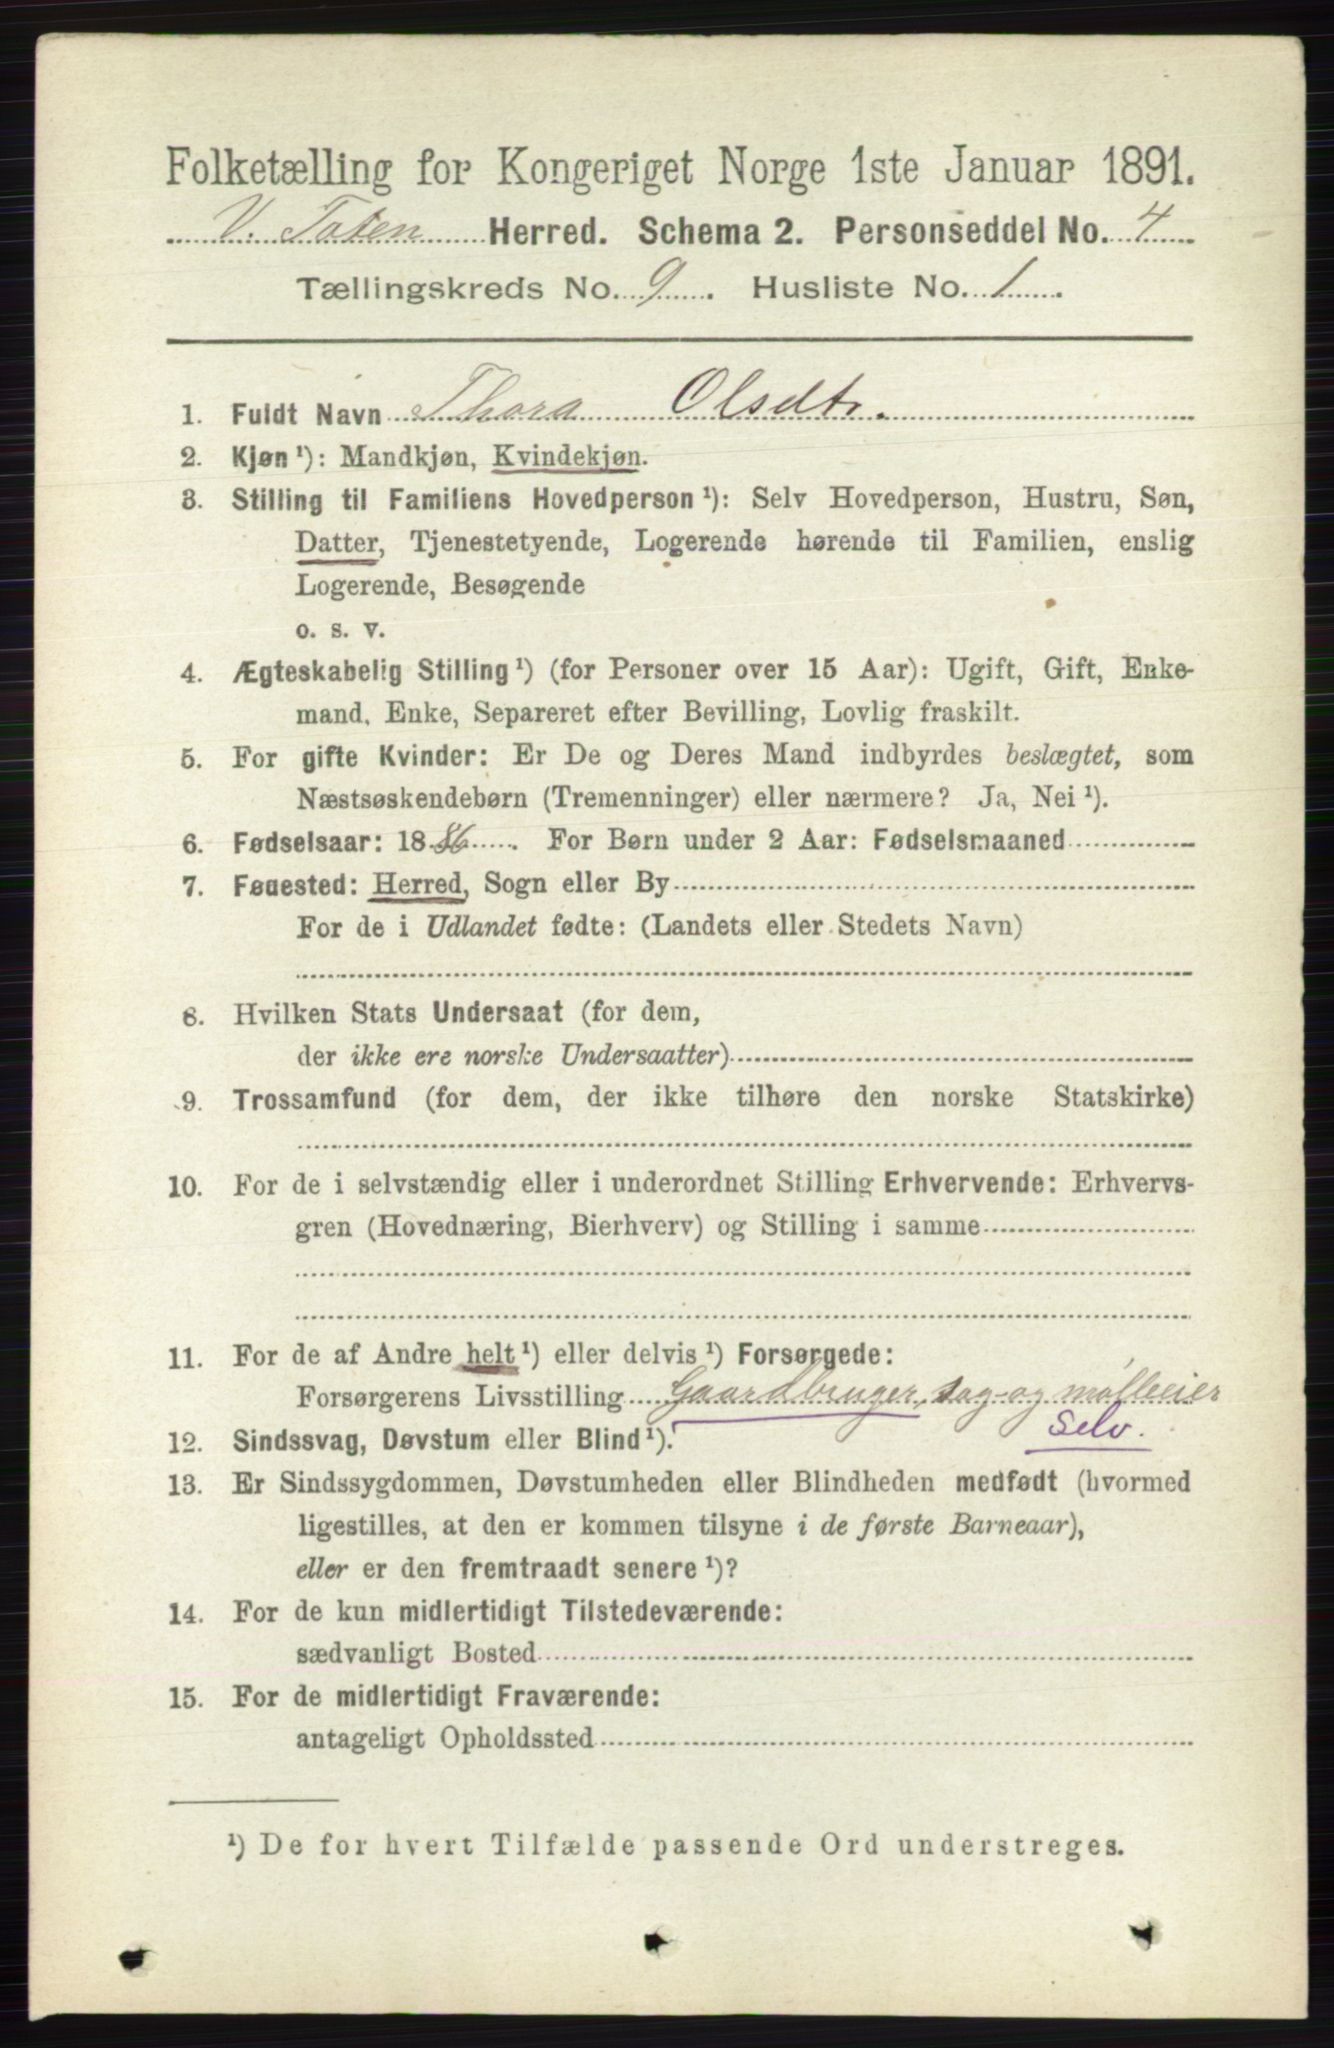 Folketælling for Kongeriget Norge 1ste Januar 1891.
V. Toten Herred. Schema 2. Personseddel No. 4
Tællingskreds No. 9. Husliste No. 1.
1. Fuldt Navn Thora Olsdtr.
2. Kjøn ¹): Mandkjøn, Kvindekjøn.
3. Stilling til Familiens Hovedperson ¹): Selv Hovedperson, Hustru, Søn,
Datter, Tjenestetyende, Logerende hørende til Familien, enslig
Logerende, Besøgende
o. s. v.
4. Ægteskabelig Stilling ¹) (for Personer over 15 Aar): Ugift, Gift, Enke-
mand, Enke, Separeret efter Bevilling, Lovlig fraskilt.
5. For gifte Kvinder: Er De og Deres Mand indbyrdes beslægtet, som
Næstsøskendebørn (Tremenninger) eller nærmere? Ja, Nei ¹).
6. Fødselsaar: 1886. For Børn under 2 Aar: Fødselsmaaned
7. Fødested: Herred, Sogn eller By
For de i Udlandet fødte: (Landets eller Stedets Navn)
8. Hvilken Stats Undersaat (for dem,
der ikke ere norske Undersaatter)
9. Trossamfund (for dem, der ikke tilhøre den norske Statskirke)
10. For de i selvstændig eller i underordnet Stilling Erhvervende: Erhvervs-
gren (Hovednæring, Bierhverv) og Stilling i samme
11. For de af Andre helt ¹) eller delvis ¹) Forsørgede:
Forsørgerens Livsstilling Gaardbruger, sag- og mølleeier
selv.
12. Sindssvag, Døvstum eller Blind ¹).
13. Er Sindssygdommen, Døvstumheden eller Blindheden medfødt (hvormed
ligestilles, at den er kommen tilsyne i de første Barneaar),
eller er den fremtraadt senere ¹)?
14. For de kun midlertidigt Tilstedeværende:
sædvanligt Bosted
15. For de midlertidigt Fraværende:
antageligt Opholdssted
¹) De for hvert Tilfælde passende Ord understreges.